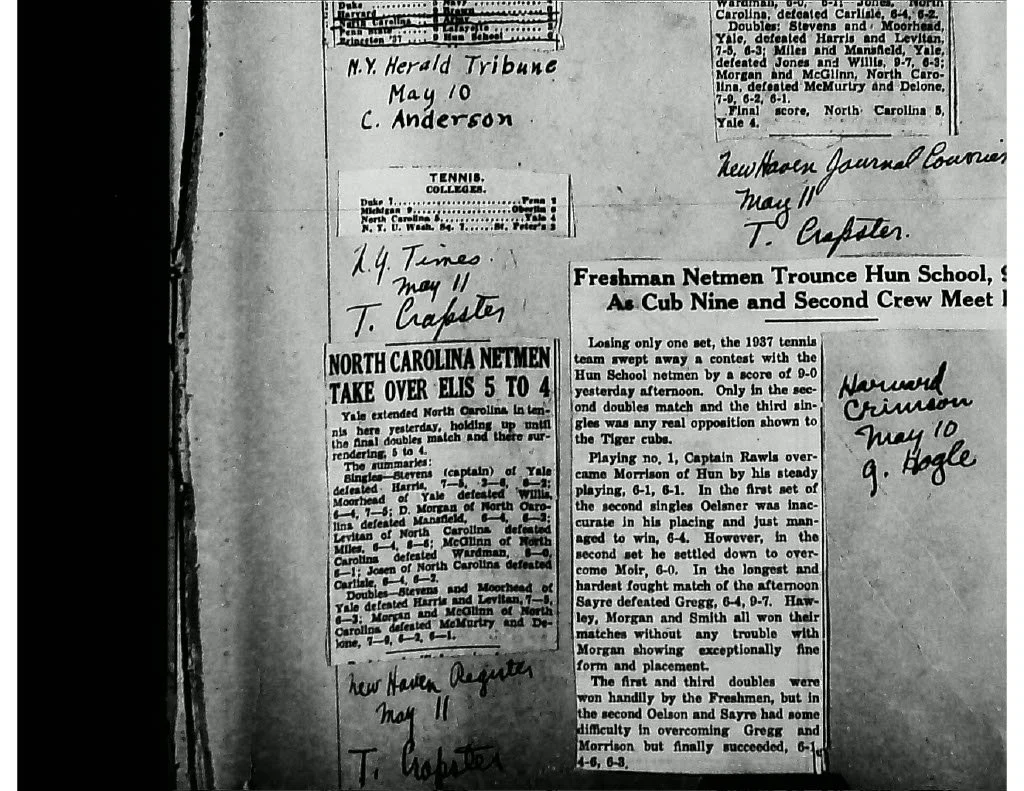 Duke
Harvard
North Carolina
Penn State
Princeton '37
Navy
Brown
Army
Lafayette
Hun School
N.Y. Herald Tribune
May 10
C. Anderson
TENNIS.
COLLEGES.
Duke 7 Penn 2
Michigan 9 Oberlin
North Carolina 5 Yale 4
N. Y. U. Wash. Sq. 7 St. Peter's 2
N.Y. Times.
May 11
T. Crapster
NORTH CAROLINA NETMEN
TAKE OVER ELIS 5 TO 4
Yale extended North Carolina in ten-
nis here yesterday, holding up until
the final doubles match and there sur-
rendering, 5 to 4.
The summaries:
Singles—Stevens (captain) of Yale
defeated Harris, 7—5, 6—2;
Moorhead of Yale defeated Willis,
6—4, 7—5; D. Morgan of North Caro-
lina defeated Mansfield, 6—4, 6—3;
Levitan of North Carolina defeated
Miles, 6—4, 8—6; McGlinn of North
Carolina defeated Wardman, 6—0,
6—1; Josen of North Carolina defeated
Carlisle, 6—4, 6—2.
Doubles—Stevens and Moorhead of
Yale defeated Harris and Levitan, 7—5,
6—3; Morgan and McGlinn of North
Carolina defeated McMurtry and De-
lone, 7—9, 6—2, 6—1.
New Haven Register
May 11
T. Crapster
Wardman, 6-0, 6-1; Jones, North
Carolina, defeated Carlisle, 6-4, 6-2.
Doubles: Stevens and Moorhead,
Yale, defeated Harris and Levitan,
7-5, 6-3; Miles and Mansfield, Yale,
defeated Jones and Willis, 9-7, 6-3;
Morgan and McGlinn, North Caro-
lina, defeated McMurtry and Delone,
7-9, 6-2, 6-1.
Final score, North Carolina 5,
Yale 4.
New Haven Journal Courier
May 11
T. Crapster.
Freshman Netmen Trounce Hun School, 9
As Cub Nine and Second Crew Meet
Losing only one set, the 1937 tennis
team swept away a contest with the
Hun School netmen by a score of 9-0
yesterday afternoon. Only in the sec-
ond doubles match and the third sin-
gles was any real opposition shown to
the Tiger cubs.
Playing no. 1, Captain Rawls over-
came Morrison of Hun by his steady
playing, 6-1, 6-1. In the first set of
the second singles Oelsner was inac-
curate in his placing and just man-
aged to win, 6-4. However, in the
second set he settled down to over-
come Moir, 6-0. In the longest and
hardest fought match of the afternoon
Sayre defeated Gregg, 6-4, 9-7. Haw-
ley, Morgan and Smith all won their
matches without any trouble with
Morgan showing exceptionally fine
form and placement.
The first and third doubles were
won handily by the Freshmen, but in
the second Oelson and Sayre had some
difficulty in overcoming Gregg and
Morrison but finally succeeded, 6-1,
4-6, 6-3.
Harvard
Crimson
May 10
G. Hogle